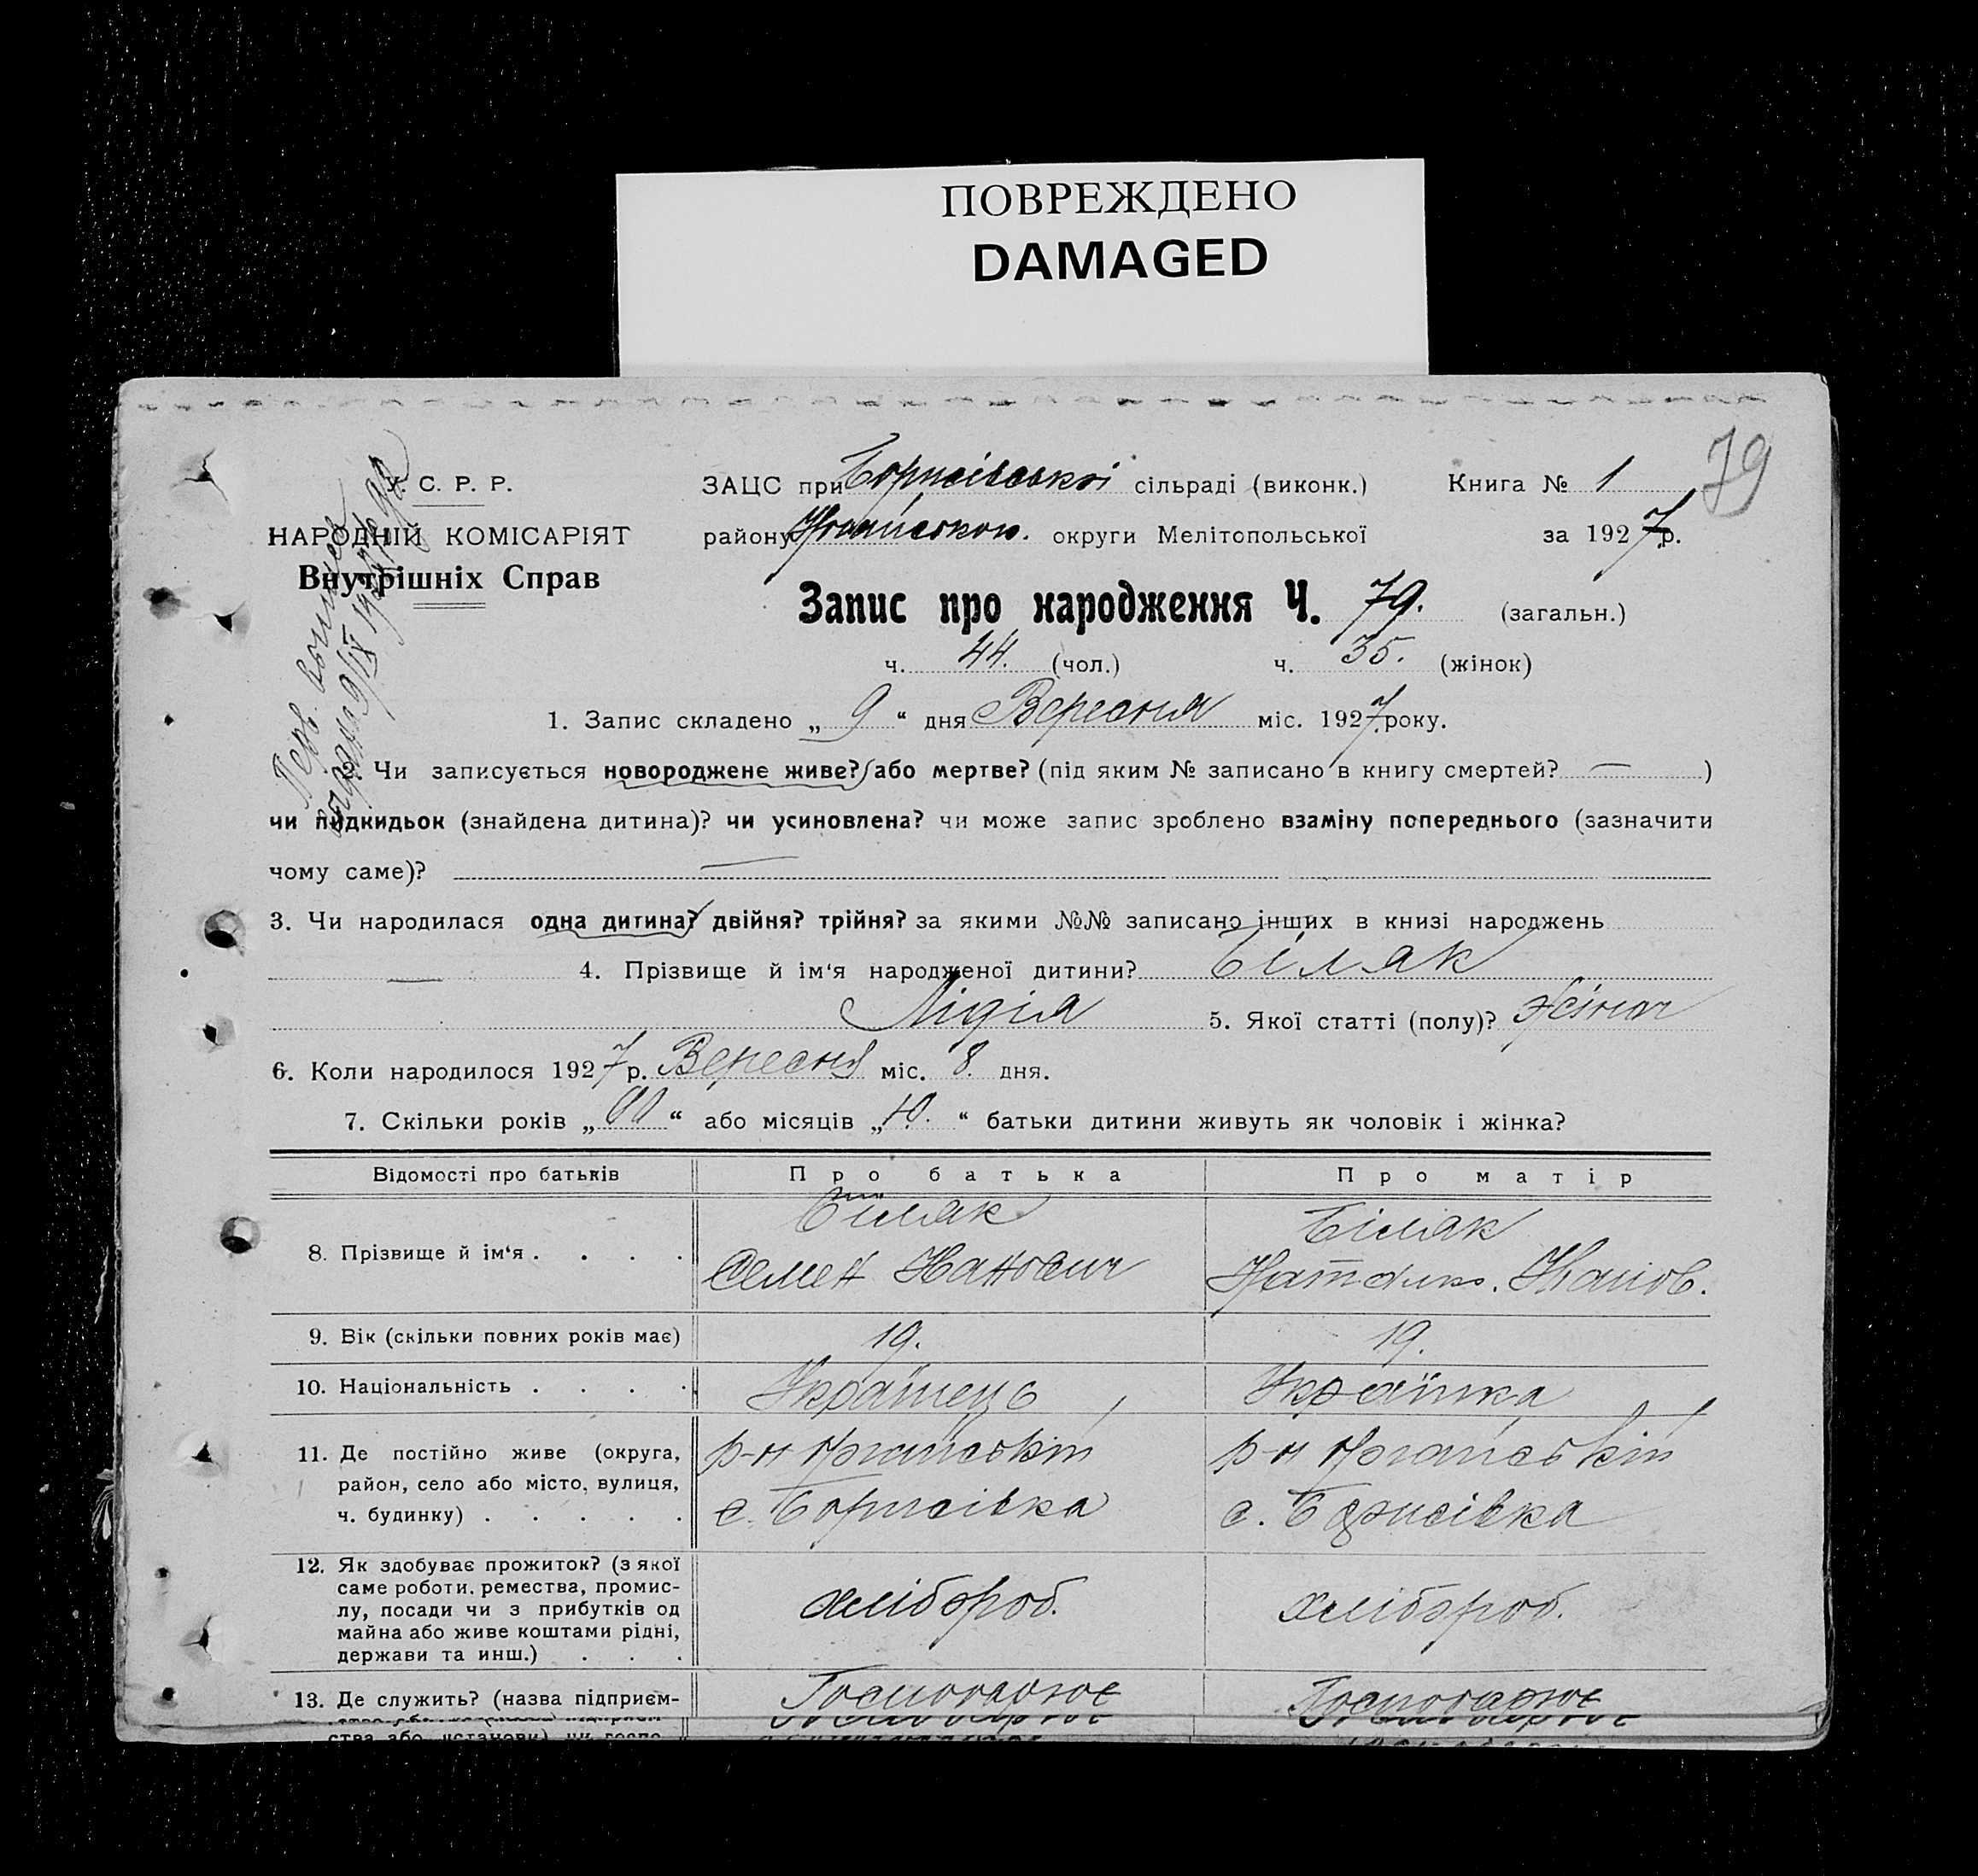 ПОВРЕЖДЕНО
DAMAGED
79
У. С. Р. Р.
НАРОДНІЙ КОМІСАРІЯТ
Внутрішніх Справ
ЗАЦС при Борисівської сільраді (виконк.) Книга № 1
району округи Мелітопольської за 1927 р.
Запис про народження Ч. 79. (загальн.)
ч. 44. (чол.) ч. 35. (жінок)
1. Запис складено „ 9 “ дня Вересня міс. 1927 року.
2. Чи записується новороджене живе? або мертве? (під яким № записано в книгу смертей? — )
чи підкидьок (знайдена дитина)? чи усиновлена? чи може запис зроблено взаміну попереднього (зазначити
чому саме)? —
3. Чи народилася одна дитина? двійня? трійня? за якими №№ записано інших в книзі народжень
— 4. Прізвище й ім‘я народженої дитини? Біляк
Лідія 5. Якої статті (полу)? жіноч
6. Коли народилося 1927 р. Вересня міс. 8. дня.
7. Скільки років „ “ або місяців „10.“ батьки дитини живуть як чоловік і жінка?
Відомості про батьків Про батька Про матір
8. Прізвище й ім‘я . . . . Біляк Семен Іванович Біляк Іванов.
9. Вік (скільки повних років має) 19. 19.
10. Національність . . . . Українець Українка
11. Де постійно живе (округа, район, село або місто, вулиця, ч. будинку) . . . . . р-н с. Борисівка р-н с. Борисівка
12. Як здобуває прожиток? (з якої саме роботи, ремества, промислу, посади чи з прибутків од майна або живе коштами рідні, держави та инш.) . . . хлібороб. хлібороб.
13. Де служить? (назва підприєм-
ства або установи) чи госпо-